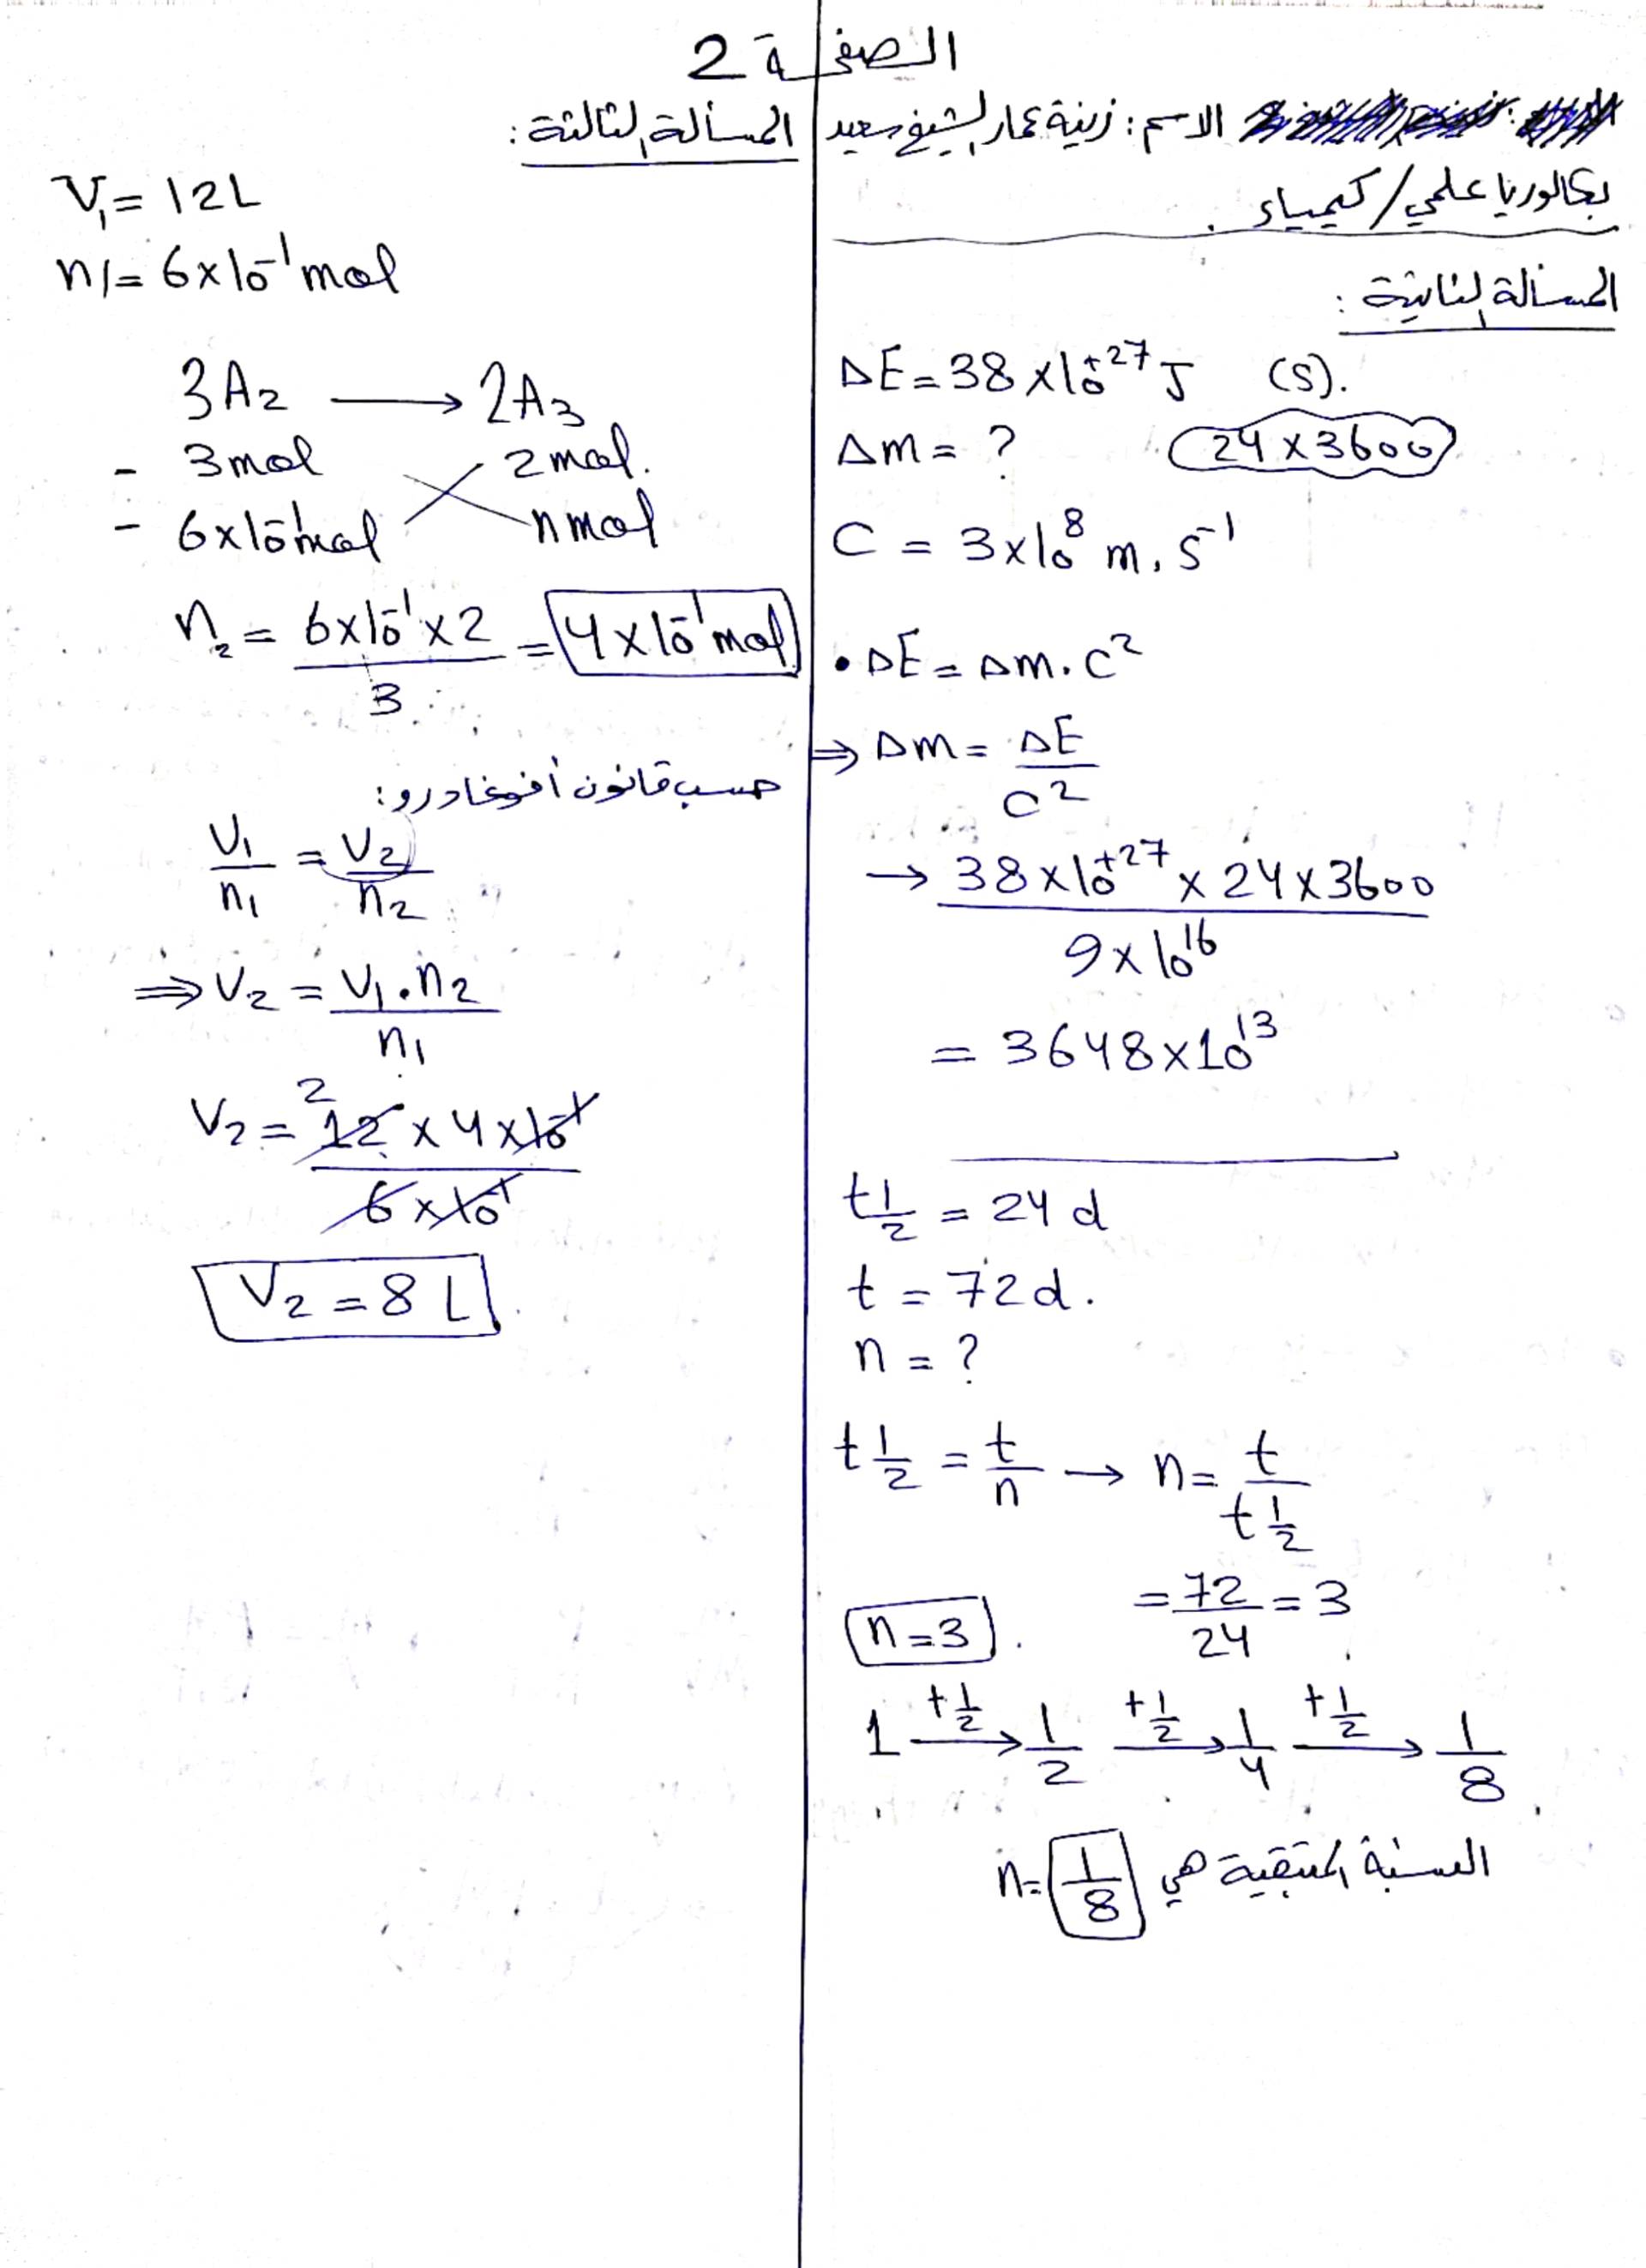 الصفحة 2
الاسم: زينة عمار الشيخ سعيد
بكالوريا علمي / كيمياء.
المسألة الثانية:
ΔE = 38 × 10^{+27} J (s).
Δm = ? 24 × 3600
C = 3 × 10^8 m.s^{-1}
• ΔE = Δm . C^2
⇒ Δm = ΔE / C^2
→ 38 × 10^{+27} × 24 × 3600 / 9 × 10^{16}
= 3648 × 10^{13}
t 1/2 = 24 d
t = 72 d.
n = ?
t 1/2 = t / n → n = t / t 1/2
= 72 / 24 = 3
n = 3.
1 —t 1/2→ 1/2 —t 1/2→ 1/4 —t 1/2→ 1/8
النسبة المتبقية هي n = 1/8
المسألة الثالثة:
V1 = 12 L
n1 = 6 × 10^{-1} mol
3A2 → 2A3
- 3 mol 2 mol.
- 6 × 10^{-1} mol n mol
n2 = 6 × 10^{-1} × 2 / 3 = 4 × 10^{-1} mol
حسب قانون أفوغادرو:
V1 / n1 = V2 / n2
⇒ V2 = V1 . n2 / n1
V2 = 2 12 × 4 × 10^{-1} / 6 × 10^{-1}
V2 = 8 L